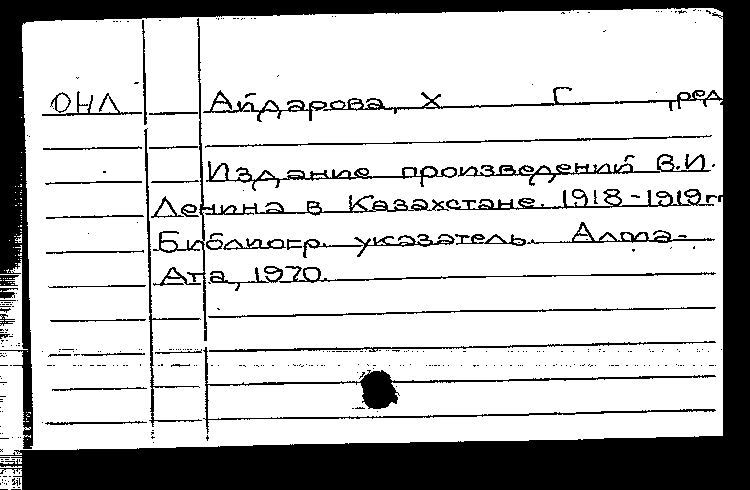 ОНЛ Айдарова, Х Г , ред
Издание произведений В.И.
Ленина в Казахстане. 1918-1919гг
Библиогр. указатель. Алма-
Ата, 1970.